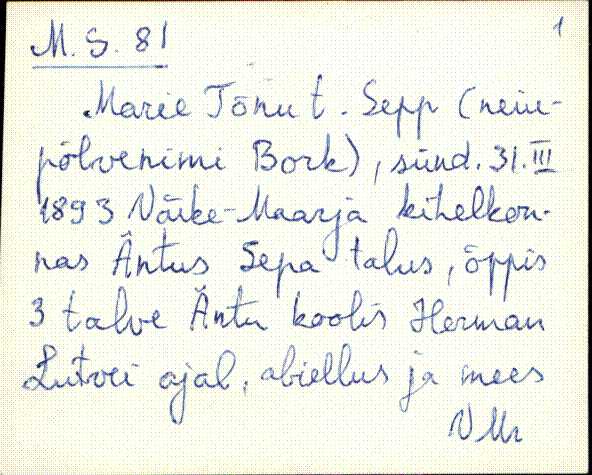 1
M. S. 81
Marie Tõnu t. Sepp (neiu-
põlvenimi Bork), sünd. 31.III
1893 Väike-Maarja kihelkon-
nas Äntus Sepa talus, õppis
3 talve Äntu koolis Herman
Lutvei ajal, abiellus ja mees
VMr